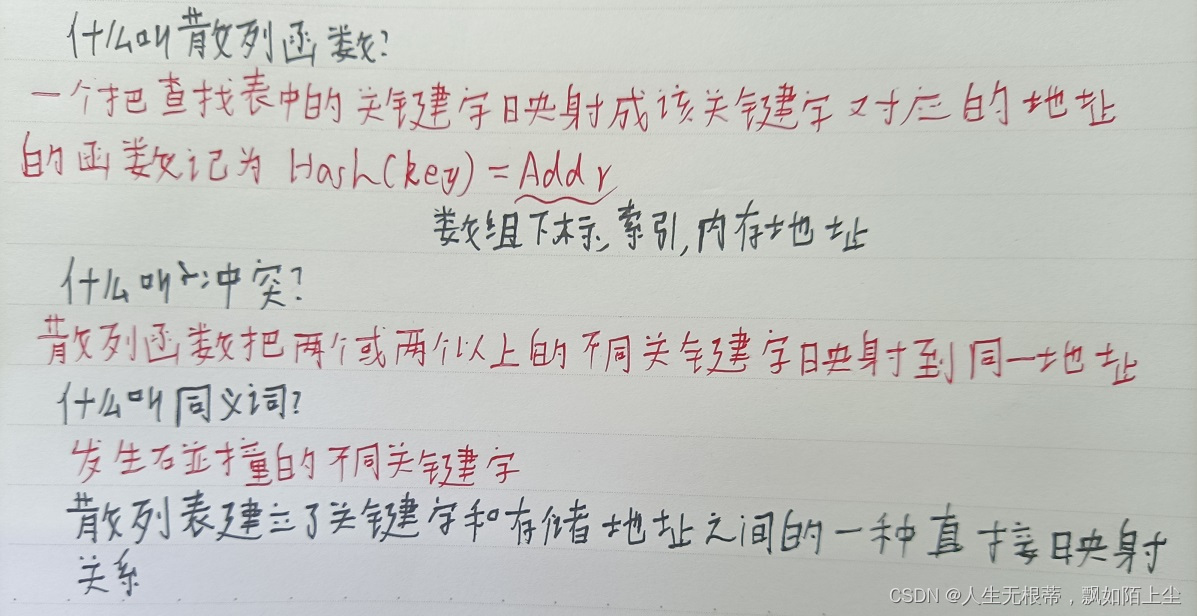 什么叫散列函数?
一个把查找表中的关键字映射成该关键字对应的地址
的函数记为 Hash(key)=Addr
数组下标、索引,内存地址
什么叫冲突?
散列函数把两个或两个以上的不同关键字映射到同一地址
什么叫同义词?
发生碰撞的不同关键字
散列表建立了关键字和存储地址之间的一种直接映射
关系
CSDN @人生无根蒂,飘如陌上尘